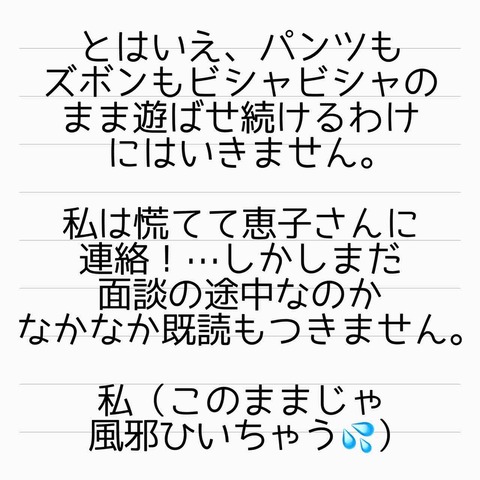 とはいえ、パンツも
ズボンもビシャビシャの
まま遊ばせ続けるわけ
にはいきません。
私は慌てて恵子さんに
連絡！…しかしまだ
面談の途中なのか
なかなか既読もつきません。
私（このままじゃ
風邪ひいちゃう💦）